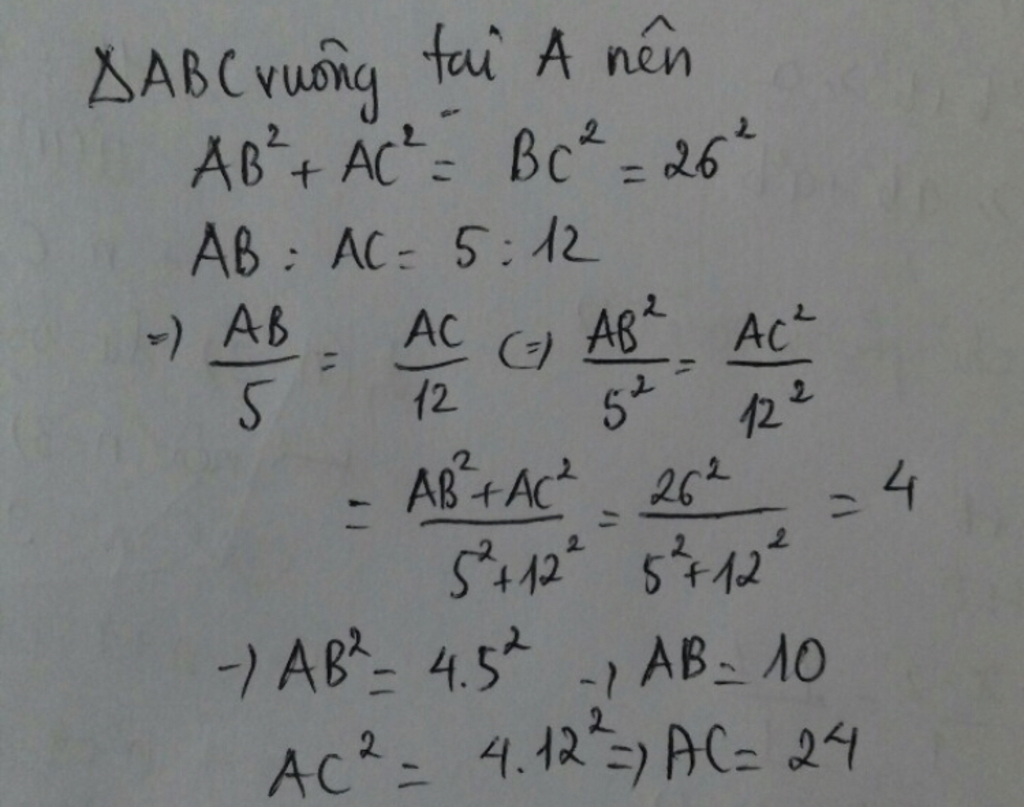 ΔABC vuông tại A nên
AB² + AC² = BC² = 26²
AB : AC = 5 : 12
=) AB/5 = AC/12 (=) AB²/5² = AC²/12²
= (AB² + AC²)/(5² + 12²) = 26²/(5² + 12²) = 4
-) AB² = 4.5² -) AB = 10
AC² = 4.12² =) AC = 24